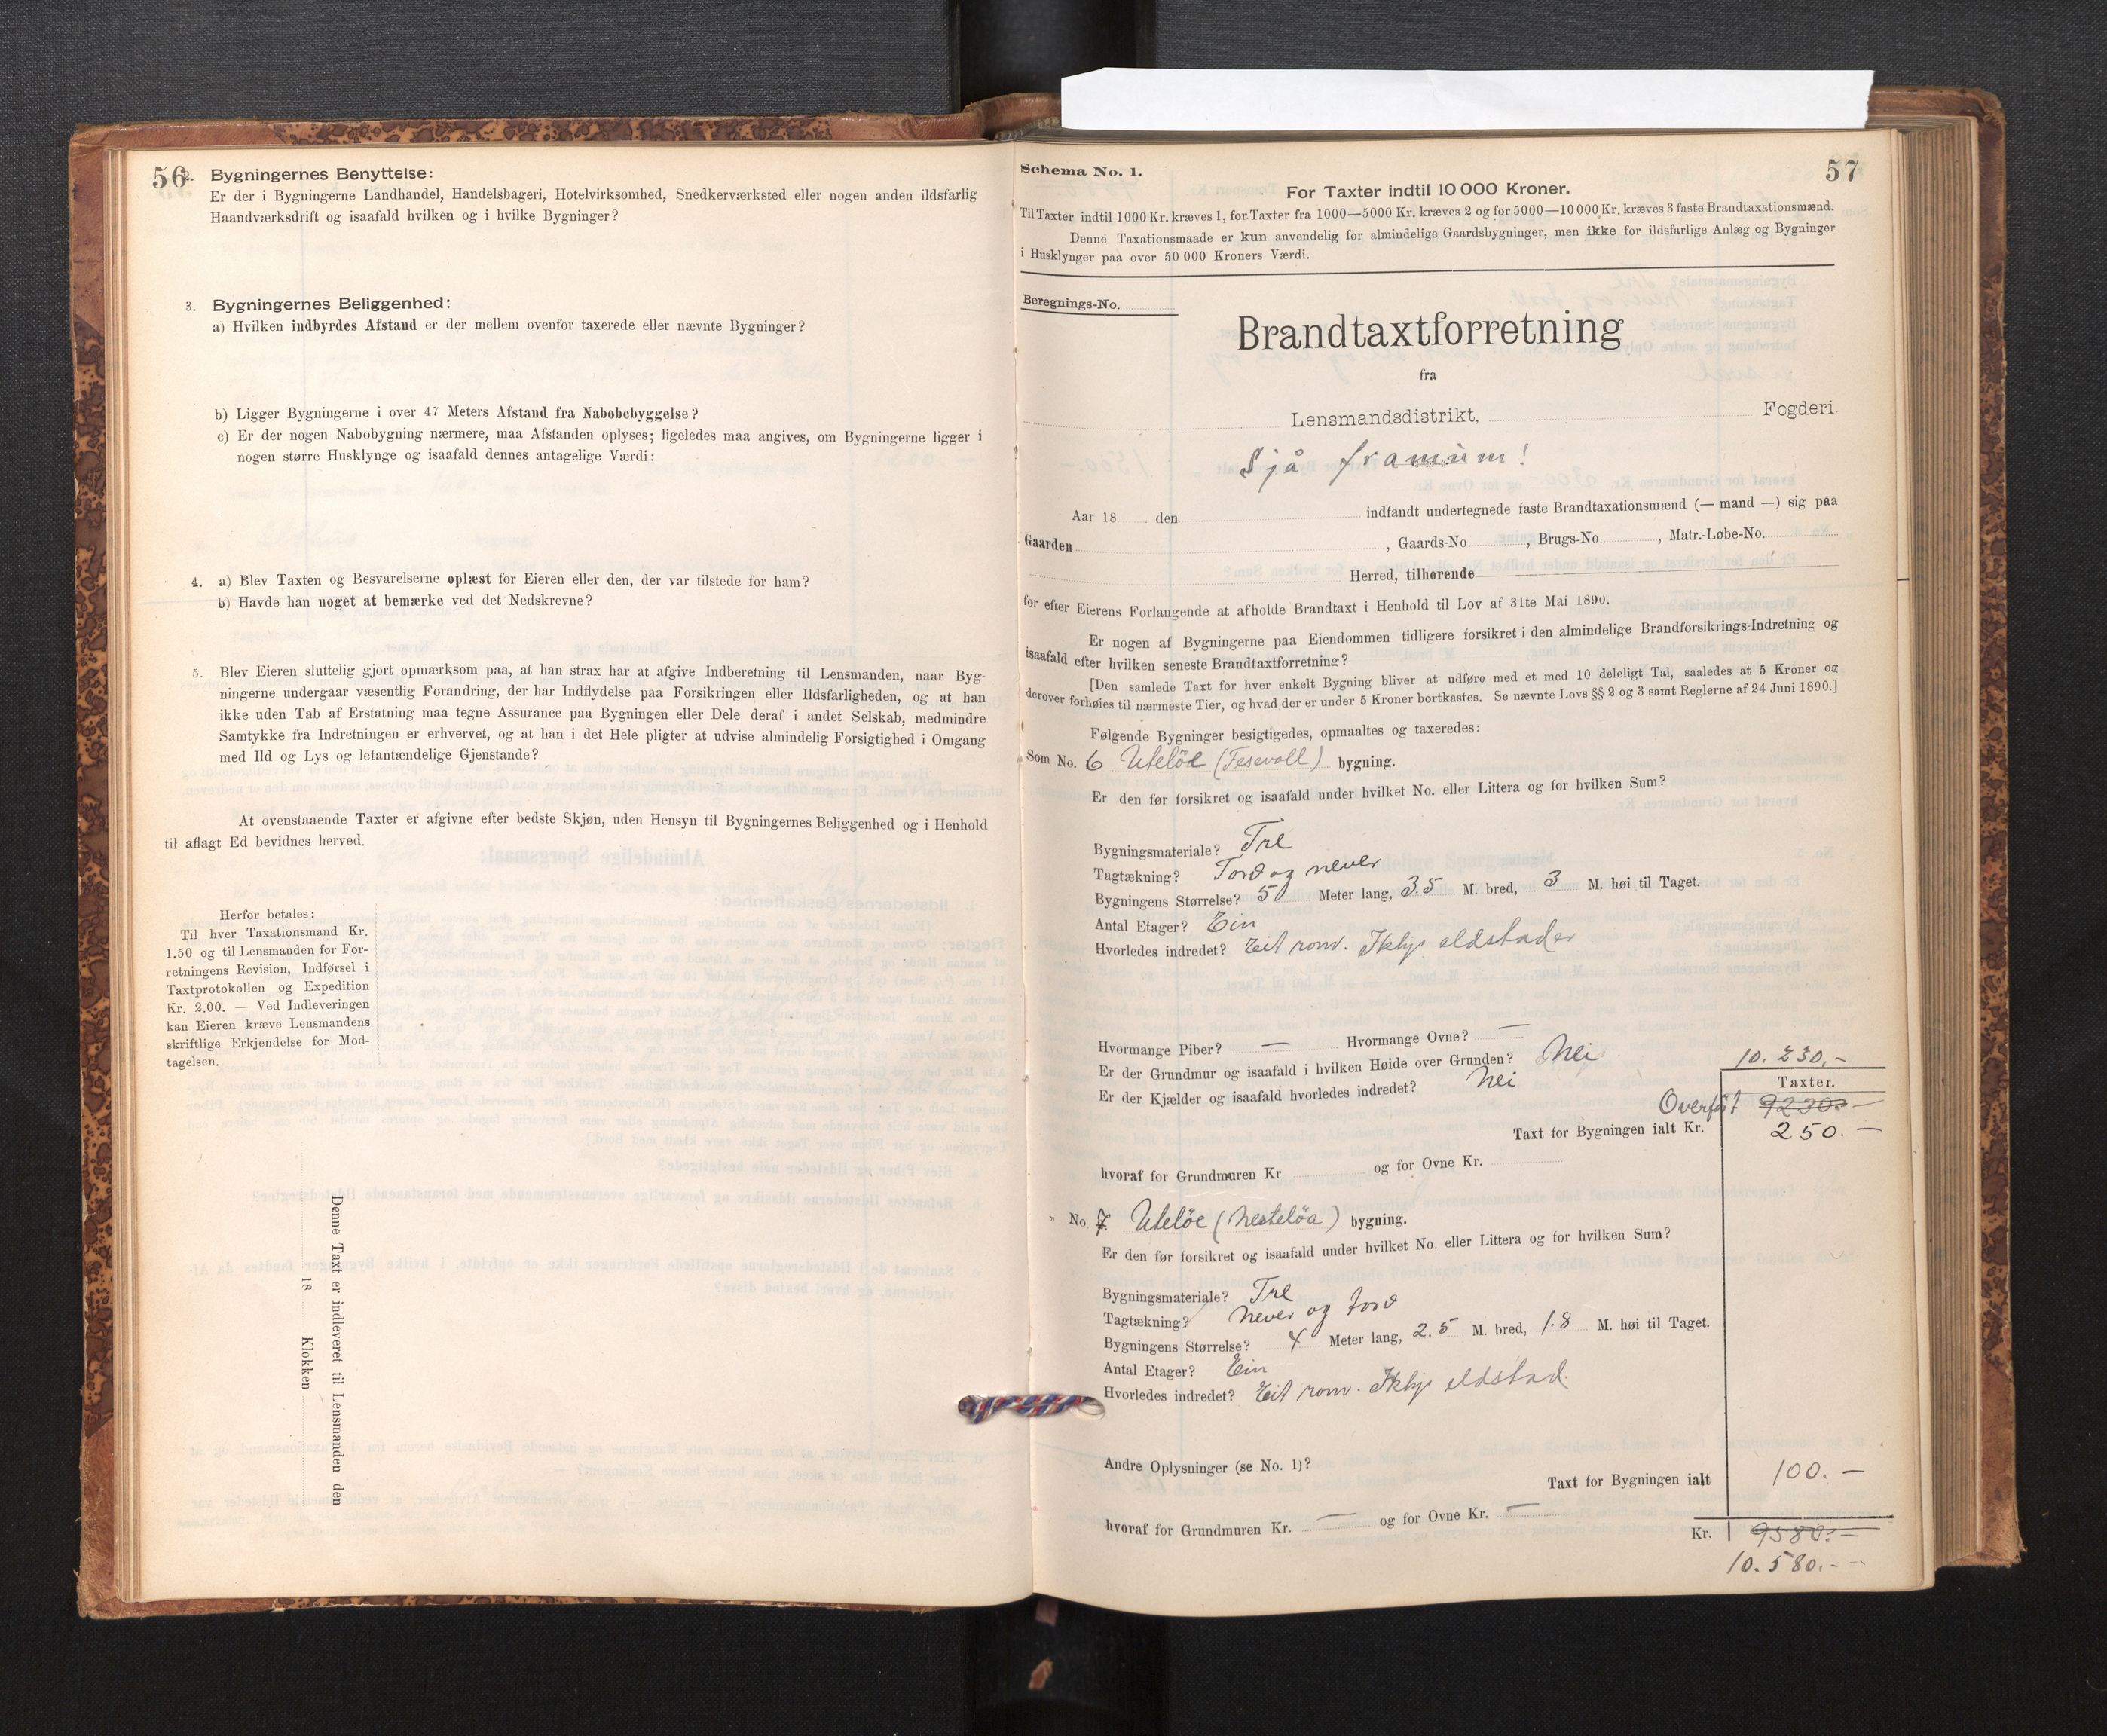 56
2. Bygningernes Benyttelse:
Er der i Bygningerne Landhandel, Handelsbageri, Hotelvirksomhed, Snedkerværksted eller nogen anden ildsfarlig
Haandværksdrift og isaafald hvilken og i hvilke Bygninger?
3. Bygningernes Beliggenhed:
a) Hvilken indbyrdes Afstand er der mellem ovenfor taxerede eller nævnte Bygninger?
b) Ligger Bygningerne i over 47 Meters Afstand fra Nabobebyggelse?
c) Er der nogen Nabobygning nærmere, maa Afstanden oplyses; ligeledes maa angives, om Bygningerne ligger i
nogen større Husklynge og isaafald dennes antagelige Værdi:
4. a) Blev Taxten og Besvarelserne oplæst for Eieren eller den, der var tilstede for ham?
b) Havde han noget at bemærke ved det Nedskrevne?
5. Blev Eieren sluttelig gjort opmærksom paa, at han strax har at afgive Indberetning til Lensmanden, naar Byg-
ningerne undergaar væsentlig Forandring, der har Indflydelse paa Forsikringen eller Ildsfarligheden, og at han
ikke uden Tab af Erstatning maa tegne Assurance paa Bygningen eller Dele deraf i andet Selskab, medmindre
Samtykke fra Indretningen er erhvervet, og at han i det Hele pligter at udvise almindelig Forsigtighed i Omgang
med Ild og Lys og letantændelige Gjenstande?
At ovenstaaende Taxter er afgivne efter bedste Skjøn, uden Hensyn til Bygningernes Beliggenhed og i Henhold
til aflagt Ed bevidnes herved.
Herfor betales:
Til hver Taxationsmand Kr.
1.50 og til Lensmanden for For-
retningens Revision, Indførsel i
Taxtprotokollen og Expedition
Kr. 2.00. — Ved Indleveringen
kan Eieren kræve Lensmandens
skriftlige Erkjendelse for Mod-
tagelsen.
Denne Taxt er indleveret til Lensmanden den
18 Klokken
57
Schema No. 1.
For Taxter indtil 10 000 Kroner.
Til Taxter indtil 1000 Kr. kræves 1, for Taxter fra 1000—5000 Kr. kræves 2 og for 5000—10 000 Kr. kræves 3 faste Brandtaxationsmænd.
Denne Taxationsmaade er kun anvendelig for almindelige Gaardsbygninger, men ikke for ildsfarlige Anlæg og Bygninger
i Husklynger paa over 50 000 Kroners Værdi.
Beregnings-No.
Brandtaxtforretning
fra
Lensmandsdistrikt, Fogderi.
Sjå framum!
Aar 18 den indfandt undertegnede faste Brandtaxationsmænd (— mand —) sig paa
Gaarden , Gaards-No. , Brugs-No. , Matr.-Løbe-No.
Herred, tilhørende
for efter Eierens Forlangende at afholde Brandtaxt i Henhold til Lov af 31te Mai 1890.
Er nogen af Bygningerne paa Eiendommen tidligere forsikret i den almindelige Brandforsikrings-Indretning og
isaafald efter hvilken seneste Brandtaxtforretning?
[Den samlede Taxt for hver enkelt Bygning bliver at udføre med et med 10 deleligt Tal, saaledes at 5 Kroner og
derover forhøies til nærmeste Tier, og hvad der er under 5 Kroner bortkastes. Se nævnte Lovs §§ 2 og 3 samt Reglerne af 24 Juni 1890.]
Følgende Bygninger besigtigedes, opmaaltes og taxeredes:
Som No. 6 Uteløe (Fesevoll) bygning.
Er den før forsikret og isaafald under hvilket No. eller Littera og for hvilken Sum?
Bygningsmateriale? Tre
Tagtækning? Torv og never
Bygningens Størrelse? 5 Meter lang, 3.5 M. bred, 3 M. høi til Taget.
Antal Etager? Ein
Hvorledes indredet? Eit rom. Ikkje eldstader
Hvormange Piber? — Hvormange Ovne? —
Er der Grundmur og isaafald i hvilken Høide over Grunden? Nei
Er der Kjælder og isaafald hvorledes indredet? Nei
10.230,-
Taxter.
Overført 9230.-
Taxt for Bygningen ialt Kr. 250.—
hvoraf for Grundmuren Kr. og for Ovne Kr.
" No. 7 Uteløe (Nesteløa) bygning.
Er den før forsikret og isaafald under hvilket No. eller Littera og for hvilken Sum?
Bygningsmateriale? Tre
Tagtækning? Never og torv
Bygningens Størrelse? 4 Meter lang, 2.5 M. bred, 1.8 M. høi til Taget.
Antal Etager? Ein
Hvorledes indredet? Eit rom. Ikkje eldstad.
Andre Oplysninger (se No. 1)?
Taxt for Bygningen ialt 100.—
hvoraf for Grundmuren Kr. — og for Ovne Kr. —
Kr. 9580.—
10.580.-